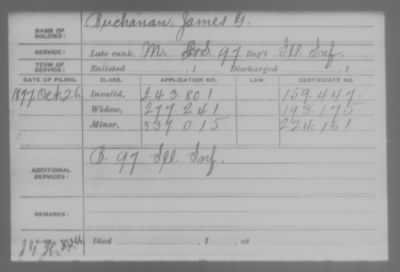 NAME OF SOLDIER: Buchanan, James G.
SERVICE: Late rank, M. Sad. 97 Reg't Ill. Inf.
TERM OF SERVICE: Enlisted , 1 Discharged , 1
DATE OF FILING. CLASS. APPLICATION NO. LAW. CERTIFICATE NO.
1877, Oct. 26 Invalid, 243.801 159.447.
Widow, 277.241 193.175
Minor, 337.015 224.161
ADDITIONAL SERVICES: B. 97 Ill. Inf.
REMARKS:
Died , 1 , at